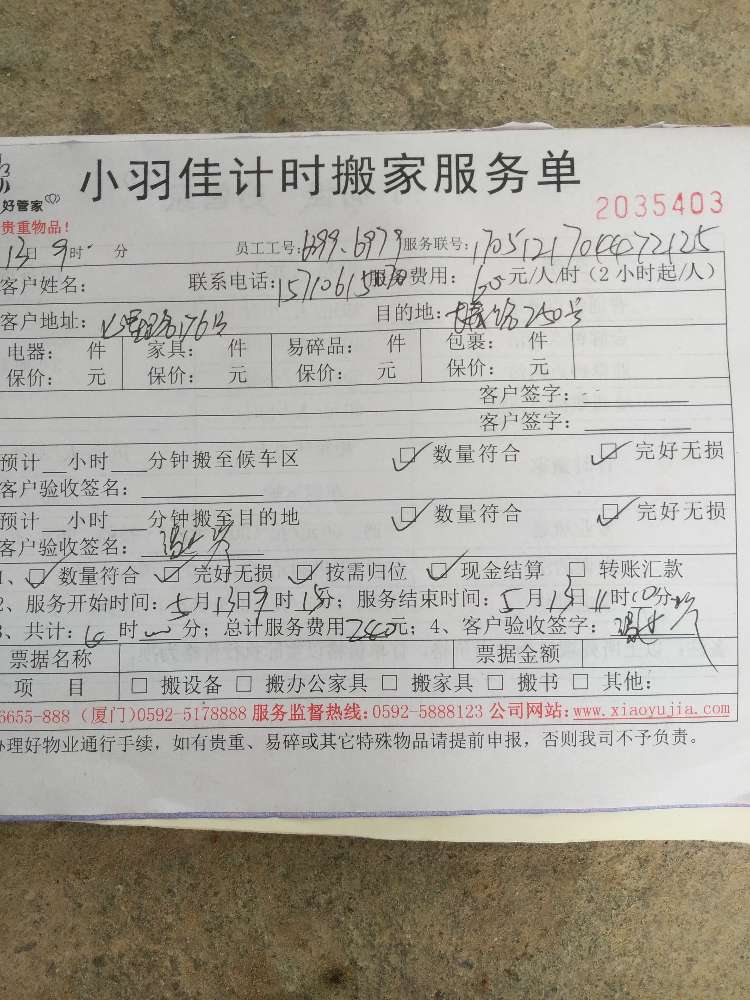 小羽佳计时搬家服务单
好管家
2035403
贵重物品!
13日9时 分 员工工号:6799.6979 服务联号:17051217044472125
客户姓名: 联系电话: 服务费用:60元/人/时(2小时起/人)
客户地址:176号 目的地:250号
电器: 件 家具: 件 易碎品: 件 包裹: 件
保价: 元 保价: 元 保价: 元 保价: 元
客户签字:
客户签字:
预计 小时 分钟搬至候车区 ☑数量符合 ☑完好无损
客户验收签名:
预计 小时 分钟搬至目的地 ☑数量符合 ☑完好无损
客户验收签名:
1、☑数量符合 ☑完好无损 ☑按需归位 ☑现金结算 □转账汇款
2、服务开始时间:5月13日9时15分;服务结束时间:5月13日11时00分
3、共计: 时 分;总计服务费用240元;4、客户验收签字:
票据名称 票据金额
项 目 □搬设备 □搬办公家具 □搬家具 □搬书 □其他:
6655-888 (厦门)0592-5178888 服务监督热线:0592-5888123 公司网站:www.xiaoyujia.com
办理好物业通行手续,如有贵重、易碎或其它特殊物品请提前申报,否则我司不予负责。